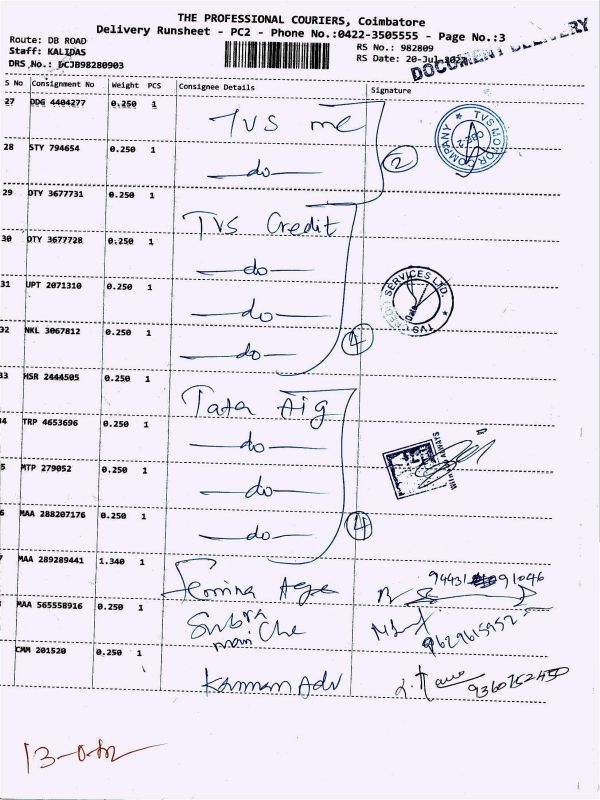 THE PROFESSIONAL COURIERS, Coimbatore
Delivery Runsheet - PC2 - Phone No.:0422-3505555 - Page No.:3
Route: DB ROAD
Staff: KALIDAS
RS No.: 982809
DRS No.: DCJB98280903
RS Date: 20-Jul-202
DOCUMENT DELIVERY
S No Consignment No Weight PCS Consignee Details Signature
27 DDG 4404277 0.250 1 TVS mc
TVS MOTOR COMPANY
28 STY 794654 0.250 1 —do—
2
29 DTY 3677731 0.250 1 TVS Credit
30 DTY 3677728 0.250 1 —do—
31 UPT 2071310 0.250 1 —do—
SERVICES LTD. TVS
Date
32 NKL 3067812 0.250 1 —do—
4
33 HSR 2444505 0.250 1 Tata Aig
34 TRP 4653696 0.250 1 —do—
5 MTP 279052 0.250 1 —do—
6 MAA 288207176 0.250 1 —do—
4
7 MAA 289289441 1.340 1 Femina Age 94431 91046
MAA 565558916 0.250 1 Subra mani Che 9629615952
CMM 201520 0.250 1 Kannan Adv 9360752450